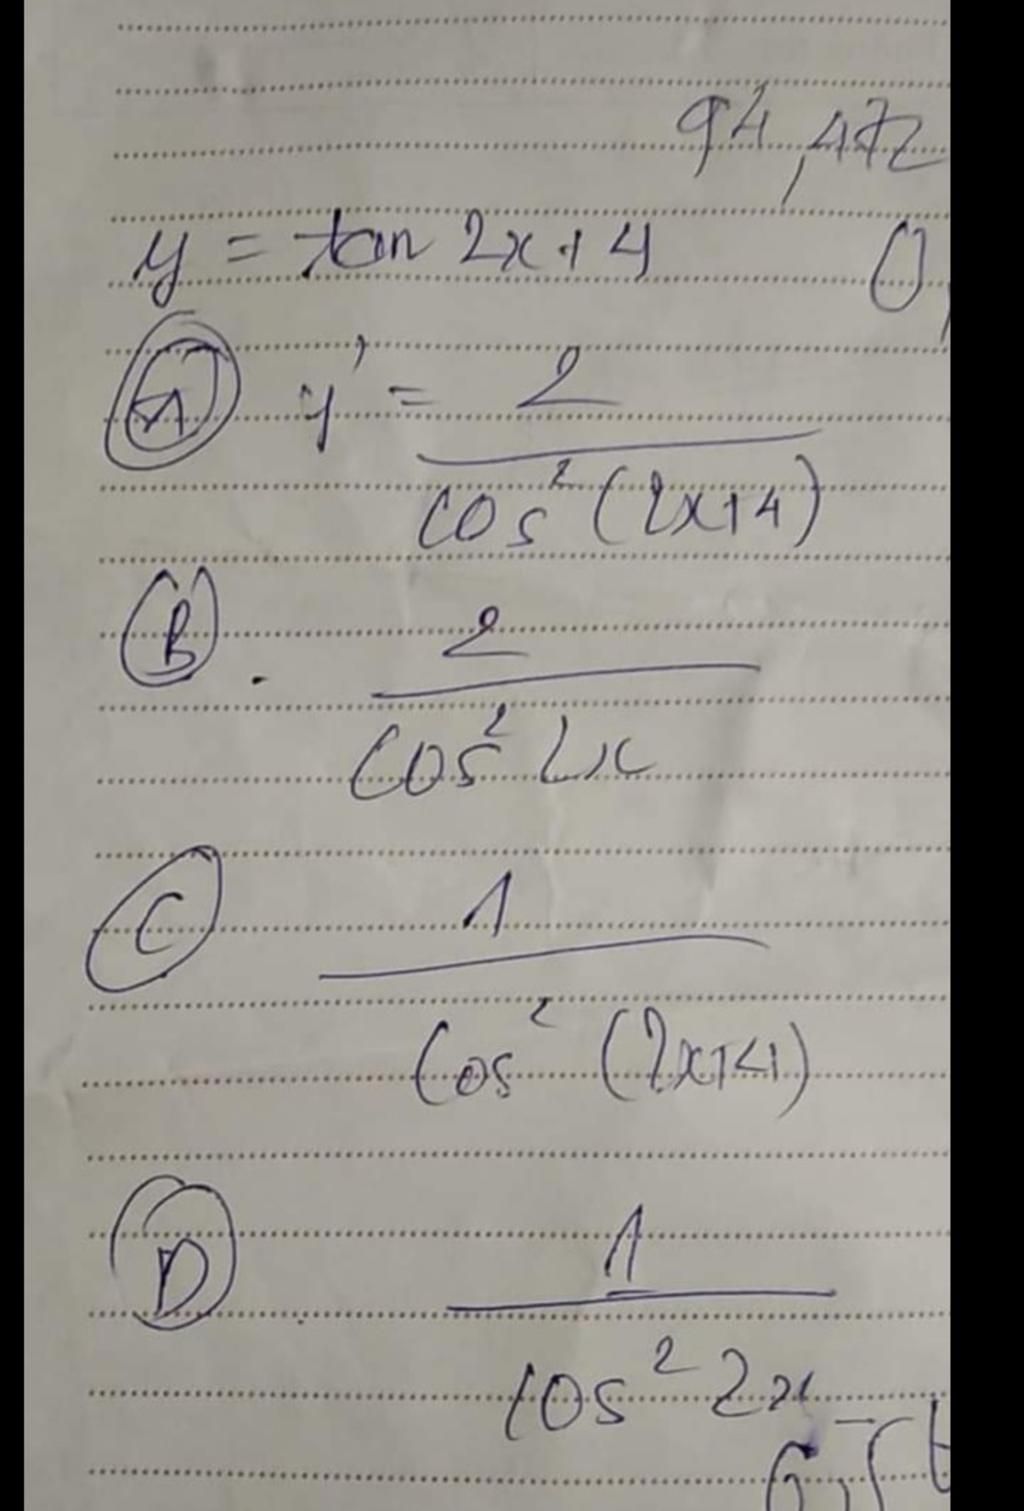 94,472
y = tan 2x+4
0,
A y' = 2
cos² (2x+4)
B. 2
cos² 2x
C 1
cos² (2x+4)
D 1
cos² 2x